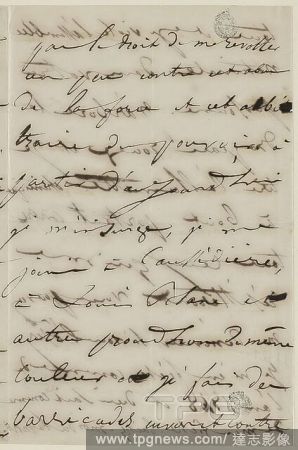 pas le droit de me révolter
un peu contre cet abus
de la force et cet arbi
traire du pouvoir, à
partir d'aujourd'hui
je m'insurge, je me
joins à Caussidière,
à Louis Blanc et
autres proudhons de même
couleur et je fais des
barricades
contre
www.tpgnews.com/達志影像